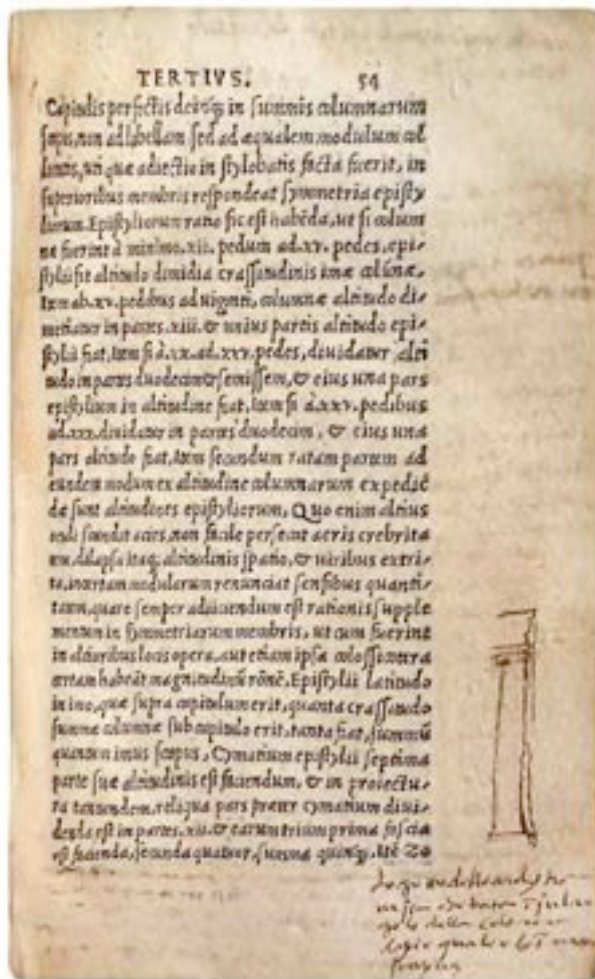 TERTIVS. 54
Capitulis perfectis deinq; in summis columnarum
scapis, non ad libellam sed ad æqualem modulum col
locatis, uti quæ adiectio in stylobatis facta fuerit, in
superioribus membris respondeat symmetria episty
liorum. Epistyliorum ratio sic est habēda, ut si colum
næ fuerint à minimo .xii. pedum ad .xv. pedes, epi-
stylii sit altitudo dimidia crassitudinis imæ colūnæ.
Item ab .xv. pedibus ad uiginti, columnæ altitudo di-
metiatur in partes .xiii. & unius partis altitudo epi-
stylii fiat. Item si à .xx. ad .xxv. pedes, diuidatur alti
tudo in partes duodecim & semissem, & eius una pars
epistylium in altitudine fiat. Item si à .xxv. pedibus
ad .xxx. diuidatur in partes duodecim, & eius una
pars altitudo fiat. Item secundum ratam partem ad
eundem modum ex altitudine columnarum expediē
dæ sunt altitudines epistyliorum. Quo enim altius
oculi scandit acies, non facile persecat aeris crebrita
tem, dilapsa itaq; altitudinis spatio, & uiribus extri
ta, incertam modulorum renunciat sensibus quanti-
tatem, quare semper adiiciendum est rationis supple
mentum in symmetriarum membris, ut cum fuerint
in altioribus locis opera, aut etiam ipsa colossicotera
certam habeāt magnitudinū rōnē. Epistylii latitudo
in imo, quæ supra capitulum erit, quanta crassitudo
summæ columnæ sub capitulo erit, tanta fiat, summū
quantum imus scapus. Cymatium epistylii septima
parte suæ altitudinis est faciendum, & in proiectu-
ra tantundem, reliqua pars præter cymatium diui-
denda est in partes .xii. & earum trium prima fascia
est facienda, secunda quatuor, summa quinq;. Itē Zo